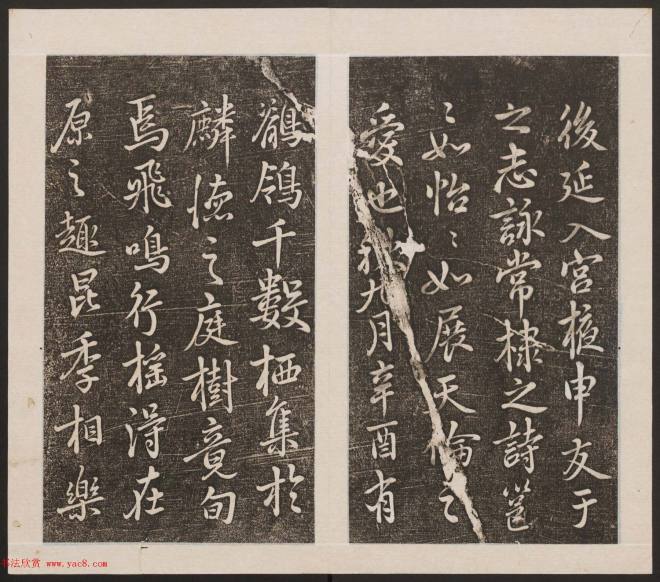 後延入宫掖申友于
之志詠常棣之詩邕
〻如怡〻如展天倫之
愛也秋九月辛酉有
鶺鴒千數栖集於
麟德之庭樹竟旬
焉飛鳴行摇得在
原之趣昆季相樂
书法欣赏 www.yac8.com